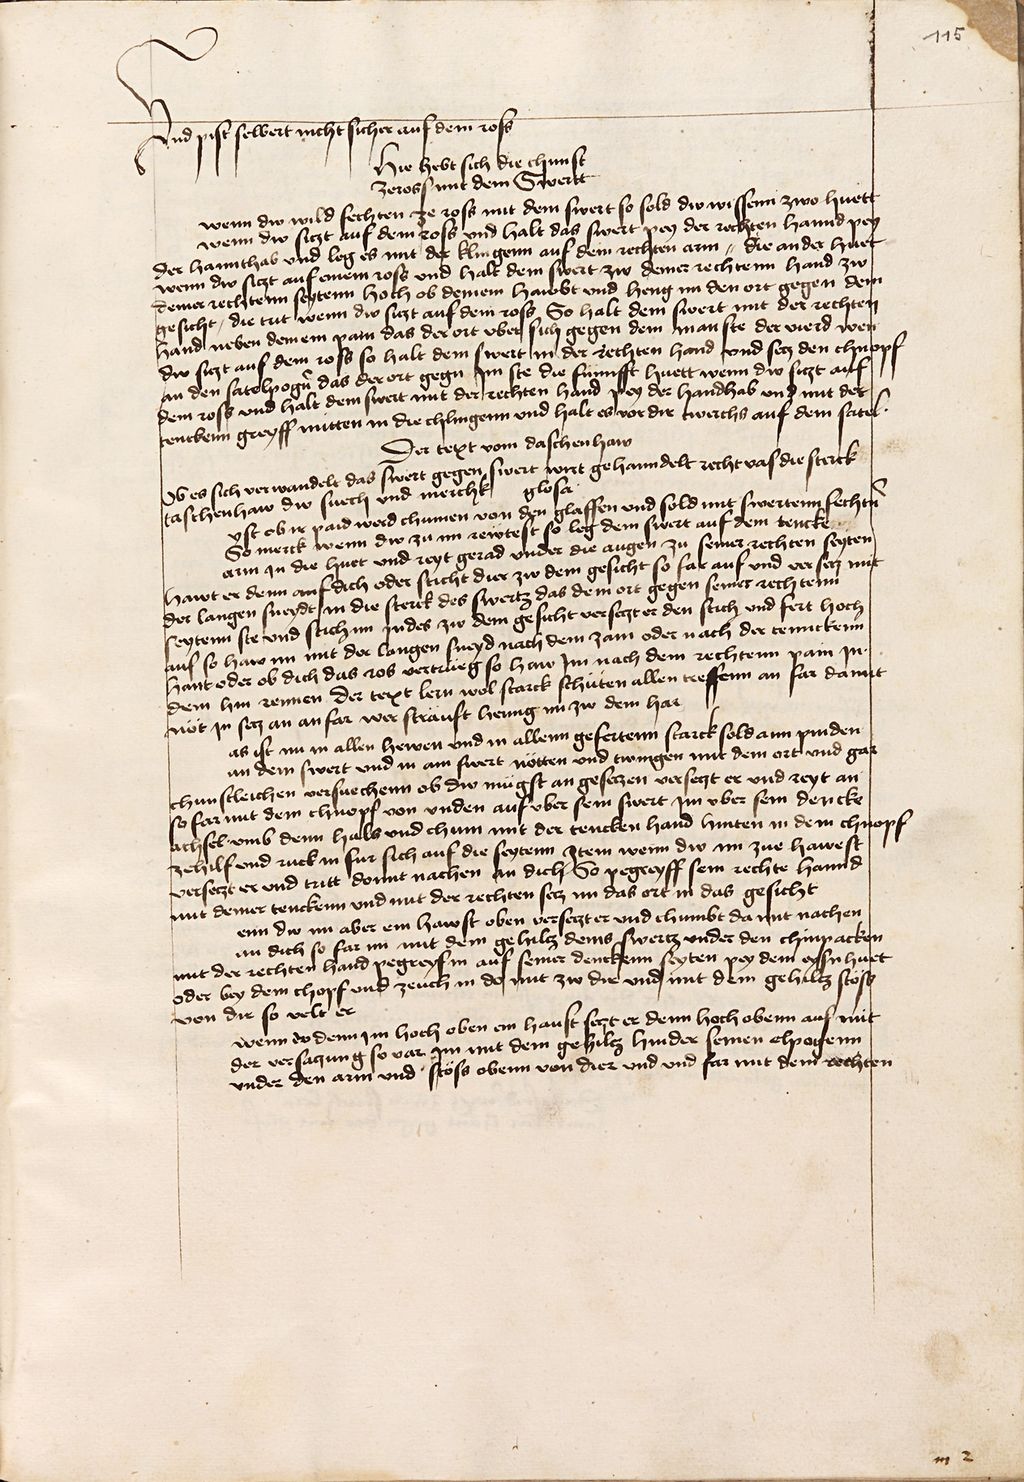 115
Und pist selbert nicht sicher auf dem ross
Hie hebt sich die chunst
zeross mit dem Swertt
wenn dw wild fechten ze ross mit dem swert so sold dw wissenn zwo huett
wenn dw siczt auf dem ross und halt das swert pey der rechten hannd pey
der hannthab und leg es mit der klingenn auf dein rechten arm / die ander huet
wenn dw siczt auf einem ross und halt dein swert zw deiner rechtenn hand zw
deiner rechtenn seytenn hoch ob deinem hawbt und heng im den ort gegen dem
gesicht / die trit wenn dw siczt auf dem ross So halt dein swert mit der rechten
hand neben deinem pain das der ort vber sich gegen dem man ste der vierd wen
dw siczt auf dem ross so halt dein swert in der rechten hand und secz den chnopf
an den satelpogn das der ort gegn im ste die fünnfft huett wenn dw siczt auf
dem ross und halt dein swert mit der rechten hand pey der handhab und mit der
tenckenn greyff mitten in die chlingenn und halt es vor dir twerchs auf dem satel
Der text vom daschenhaw
Ob es sich verwandelt das swert gegen swert wirt gehanndelt recht vass die sterck
taschenhaw dw suech und merchk glosa
yst ob ir paid werd chumen von den glessen und sold mit swertenn fechtn
So merck wenn dw zu im rewtest so leg dein swert auf dein tencke
arm in die huet und reyt gerad under die augen zu seiner rechten seyten
hawt er denn auf dich oder sticht dier zw dem gesicht so far auf und versecz mit
der langen sneydt in die sterck des swertz das dein ort gegen seiner rechtenn
seytenn ste und stich im indes zw dem gesicht verseczt er den stich und fert hoch
auf so haw im mit der langen sneyd nach dem zam oder nach der tennckenn
hant oder ob dich das ros vertrueg so haw im nach dem rechtenn pain in
dem hin rennen Der text lern wol starck schüten allen treffenn an far damit
nöt in secz an an far wer sträuft heng im zw dem har
as ist im in allen hewen und in allenn gefertenn starck sold ann pinden
an dem swert und in am swert nötten und twingen mit dem ort und gar
chunstleichen versuechenn ob dw mügst an gesetzen verseczt er und reyt an
so far mit dem chnopf von unden auf vber sein swert im vber sein dencke
achsel umb denn hals und chum mit der tencken hand hinten in dein chnopf
zehilf und ruck in fur sich auf die seytenn Item wenn dw im zue hawest
verseczt er und tritt domit nachen an dich So pegreyff sein rechte hannd
mit deiner tenckenn und mit der rechten secz im das ort in das gesicht
enn dw im aber ein hawst oben verseczt er und chumbt da mit nachen
an dich so far im mit dem gehilcz deins swertz under den chinpacken
mit der rechten hand pegreyf in auf seiner denckenn seyten pey dem eysnhuet
oder bey dem chopf und zeuch in do mit zw die und mit dem gehilcz stoss
von dir so velt er
wenn do denn im hoch oben ein haust seczt er denn hoch obenn auf mit
der versaczung so var im mit dem gehilcz hinder seinen elpogenn
under den arm und stöss obenn von dier und und far mit dem rechten
m 2